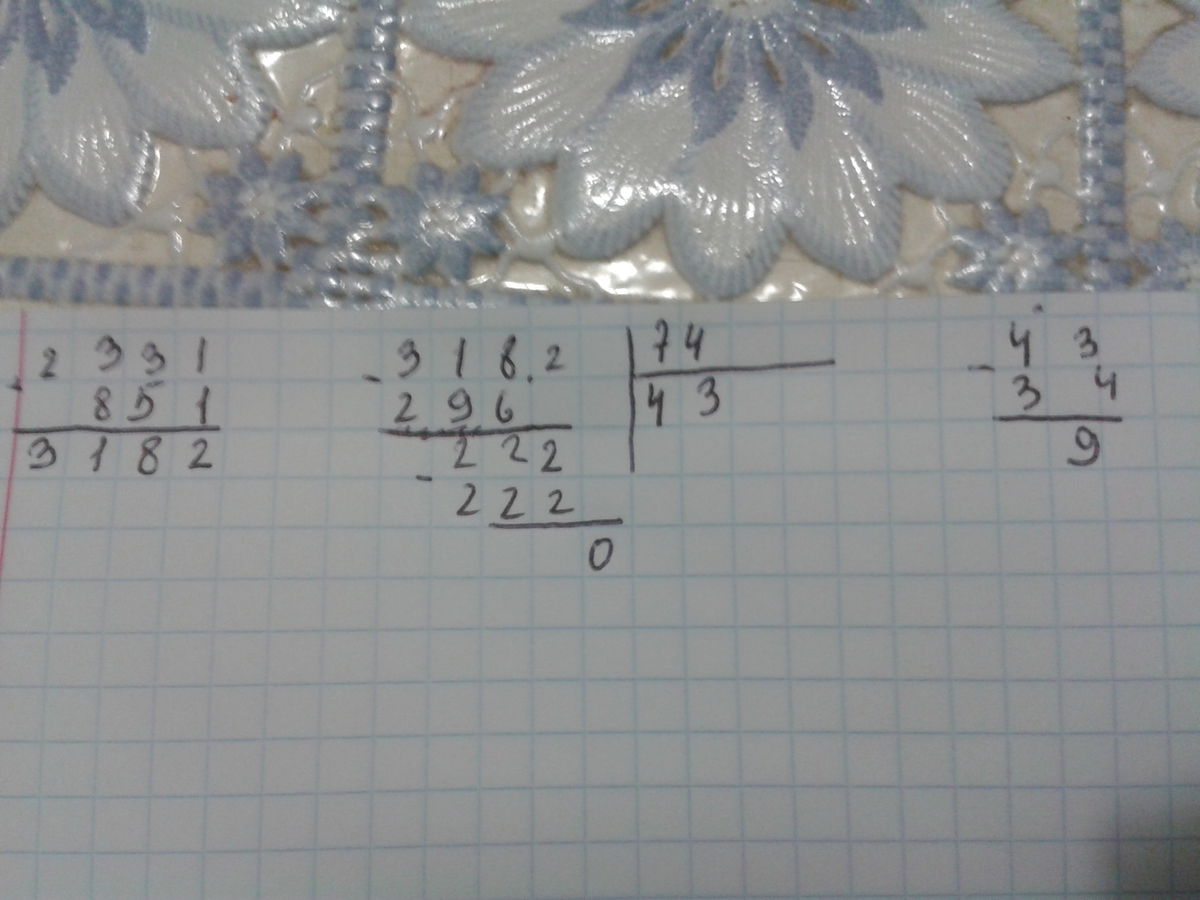 2331
· 851
3182
- 318.2 | 74
296 | 43
222
- 222
0
- 43
34
9